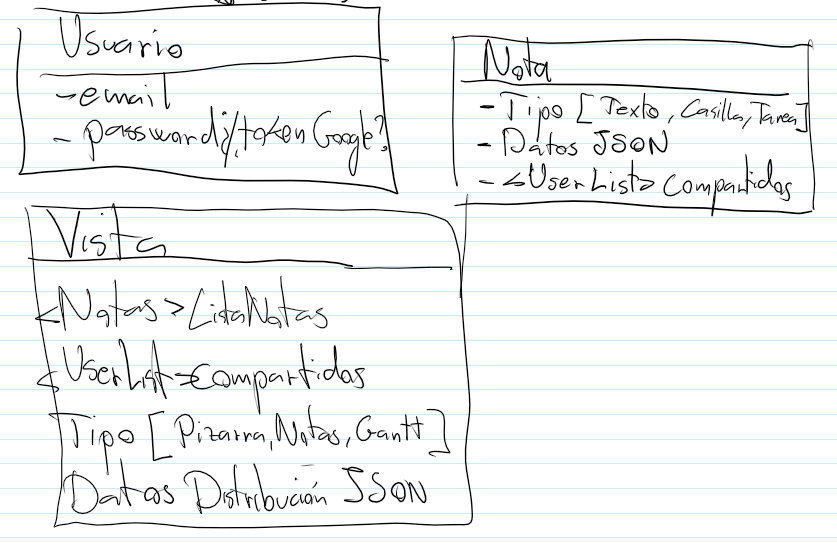 Usuario
- email
- password y/token Google?
Nota
- Tipo [Texto, Casilla, Tarea]
- Datos JSON
- <UserList> Compartidos
Vista
<Notas> ListaNotas
<UserList> compartidos
Tipo [Pizarra, Notas, Gantt]
Datos Distribución JSON